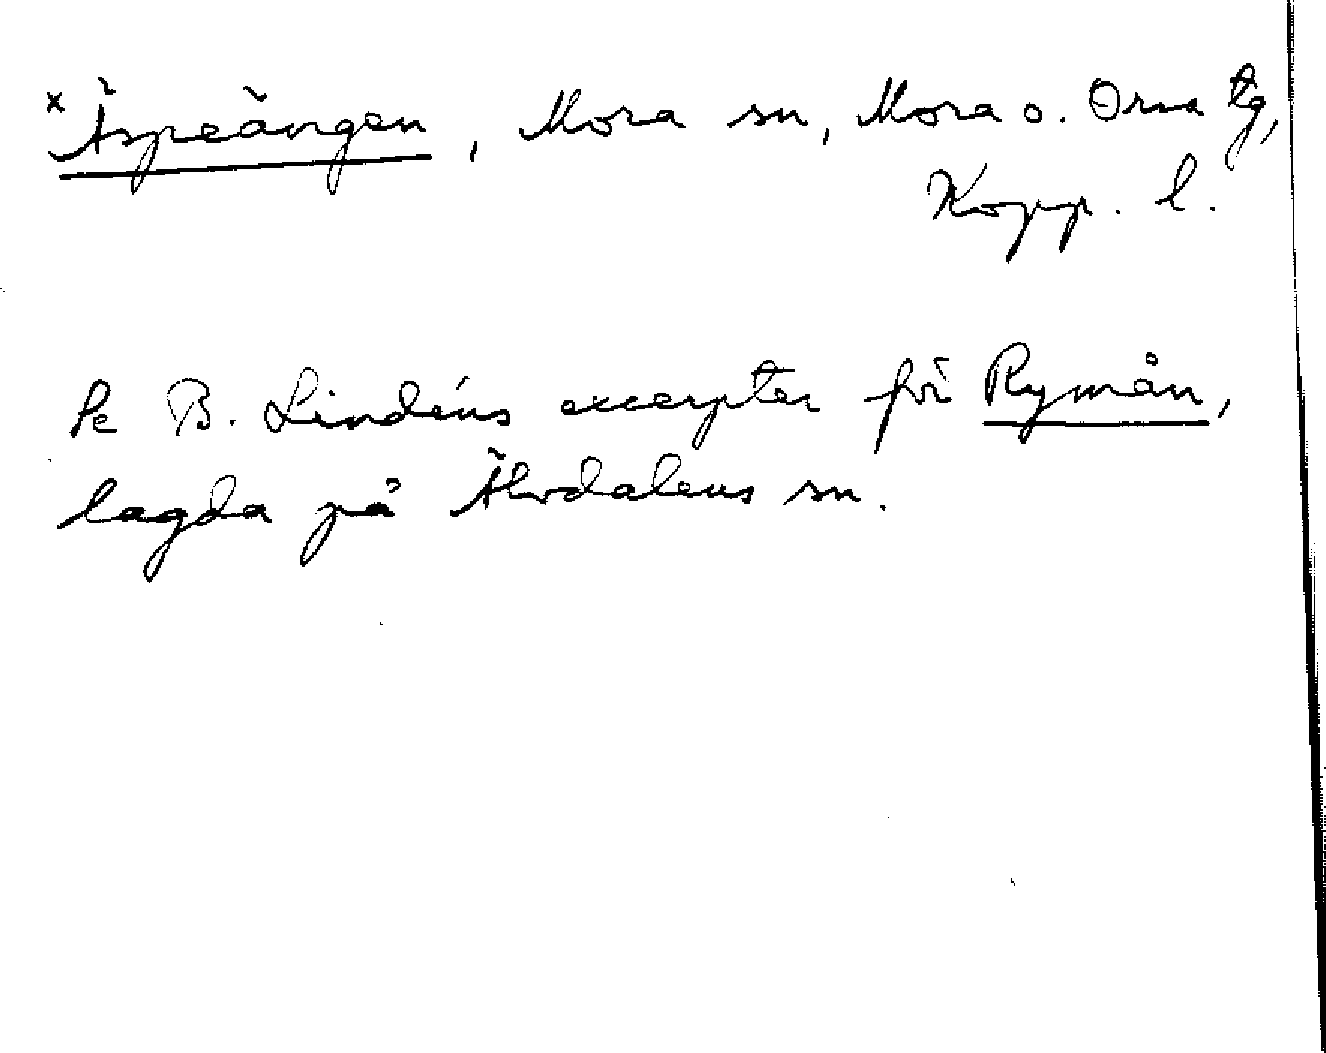 x Äspeängen, Mora sn, Mora o. Orsa tg,
Kopp. l.
Se B. Lindéns excerpter för Rymån,
lagda på Älvdalens sn.